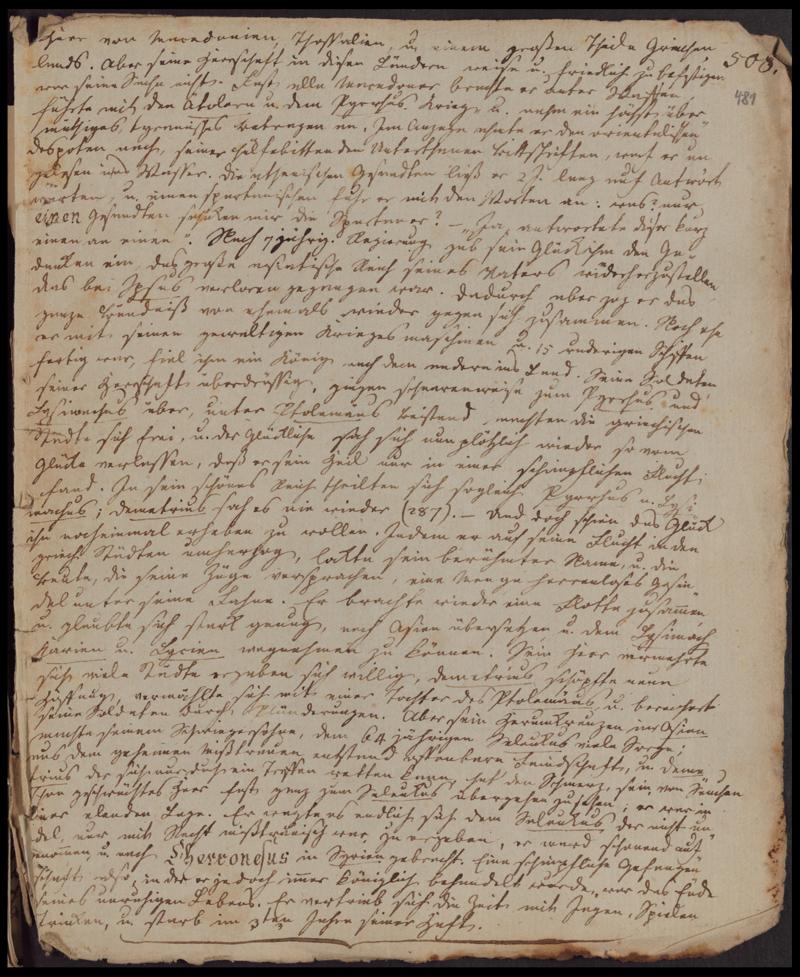 Herr von Macedonien, Thessalien, u. einem großen Theile Griechen=
508.
lands. Aber seine Herrschaft in disen Ländern weise u. friedlich zu befestigen
war seine Sache nicht. Fast alle Macedoner brachte er unter Waffen,
481
führte mit den Ätolern u. dem Pyrrhus Krieg u. nahm ein höchst über=
müthiges, tyrannisches Betragen an. Im Anzuge ahmte er den orientalischen
Despoten nach, seiner hilfebittenden Unterthanen Bittschriften, warf er un=
gelesen ins Wasser. Die athenischen Gesandten ließ er 2 J. lang auf Antwort
warten, u. einen spartanischen fuhr er mit den Worten an: was? nur
einen Gesandten schicken mir die Spartaner? – "Ja, antwortete diser kurz
einen an einen". Nach 7jährig. Regierung gab sein Glück ihm den Ge=
danken ein, das große asiatische Reich seines Vaters wiederherzustellen
das bei Ipsus verloren gegangen war. Dadurch aber zog er das
ganze Bündniß von ehemals wieder gegen sich zusammen. Noch ehe
er mit seinen gewaltigen Kriegesmaschinen u. 15 ruderigen Schiffen
fertig war, fiel ihm ein König nach dem andern ins Land. Seine Soldaten
seiner Herrschaft überdrüssig, giengen schaarenweise zum Pyrrhus und
Lysimachus über, unter Ptolemäus Beistand machten die griechischen
Städte sich frei, u. der Glückliche sah sich nun plötzlich wieder so vom
Glücke verlassen, daß er sein Heil nur in einer schimpflichen Flucht
fand. In sein schönes Reich theilten sich sogleich Pyrrhus u. Lysi=
machus; Demetrius sah es nie wieder (287). – Und doch schien das Glück
ihn nocheinmal erheben zu wollen. Indem er auf seiner Flucht in den
griech. Städten umherzog, lockte sein berühmter Name, u. die
Beute, die seine Züge versprachen, eine Menge herrenloses Gesin=
del unter seine Fahne. Er brachte wieder eine Flotte zusammen
u. glaubte sich stark genug, nach Asien übersetzen u. dem Lysimach
Karien u. Lycien wegnehmen zu können. Sein Heer vermehrte
sich, viele Städte ergaben sich willig, Demetrius schöpfte neue
Hoffnung, vermählte sich mit einer Tochter des Ptolemäus, u. bereicherte
seine Soldaten durch Plünderungen. Aber sein Herumkreuzen in Asien
machte seinem Schwiegersohne, dem 64 jährigen Seleukus viele Sorge;
aus dem geheimen Mißtrauen entstand offenbare Feindschaft, u. Deme=
trius der sich nur durch ein Treffen retten kann, hat den Schmerz, sein von Seuchen
schon geschwächtes Heer fast ganz zum Seleukus übergehen zu sehen; er war in
einer elenden Lage. Er wagte es endlich sich dem Seleukus, der nicht un=
del, nur mit Recht mißtrauisch war, zu ergeben, er ward schonend auf=
genommen, u. nach Chersonesus in Syrien gebracht. Eine schimpfliche Gefangen=
schaft also, in der er jedoch immer königlich behandelt wurde, war das Ende
seines unruhigen Lebens. Er vertrieb sich die Zeit mit Jagen, Spielen
Trinken, u. starb im 3ten Jahre seiner Haft.